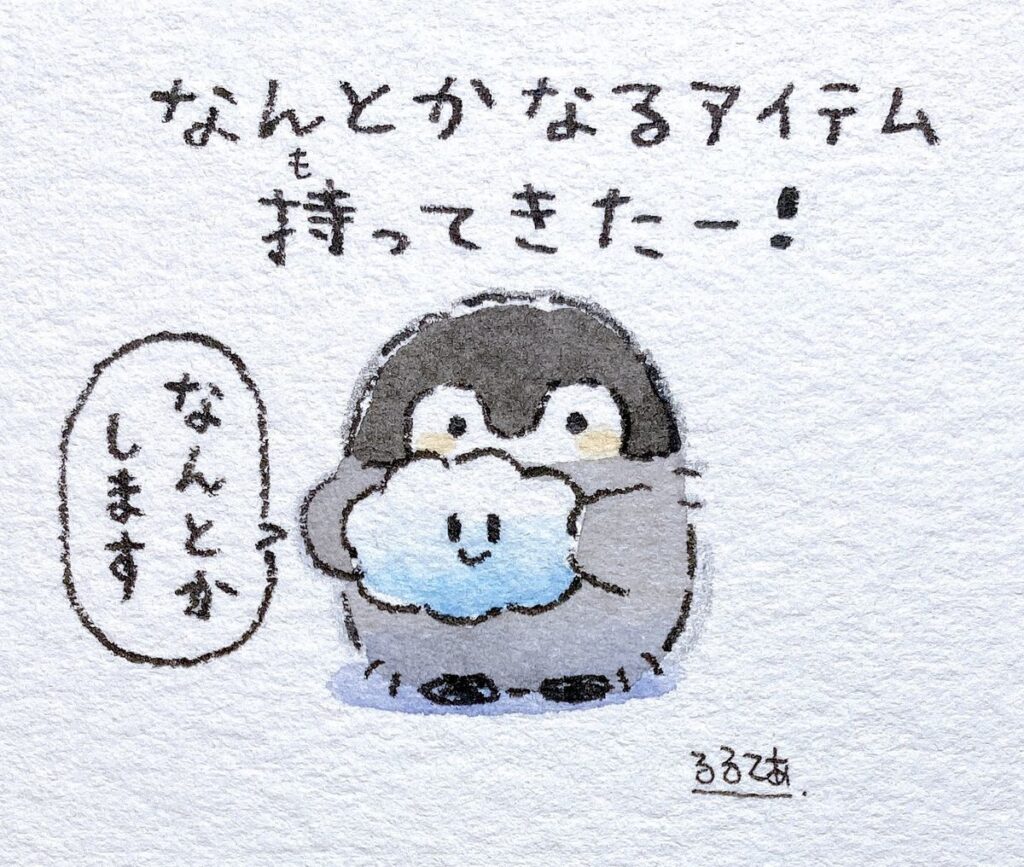 なんとかなるアイテム
も
持ってきたー!
なんとか
します
るるてあ.